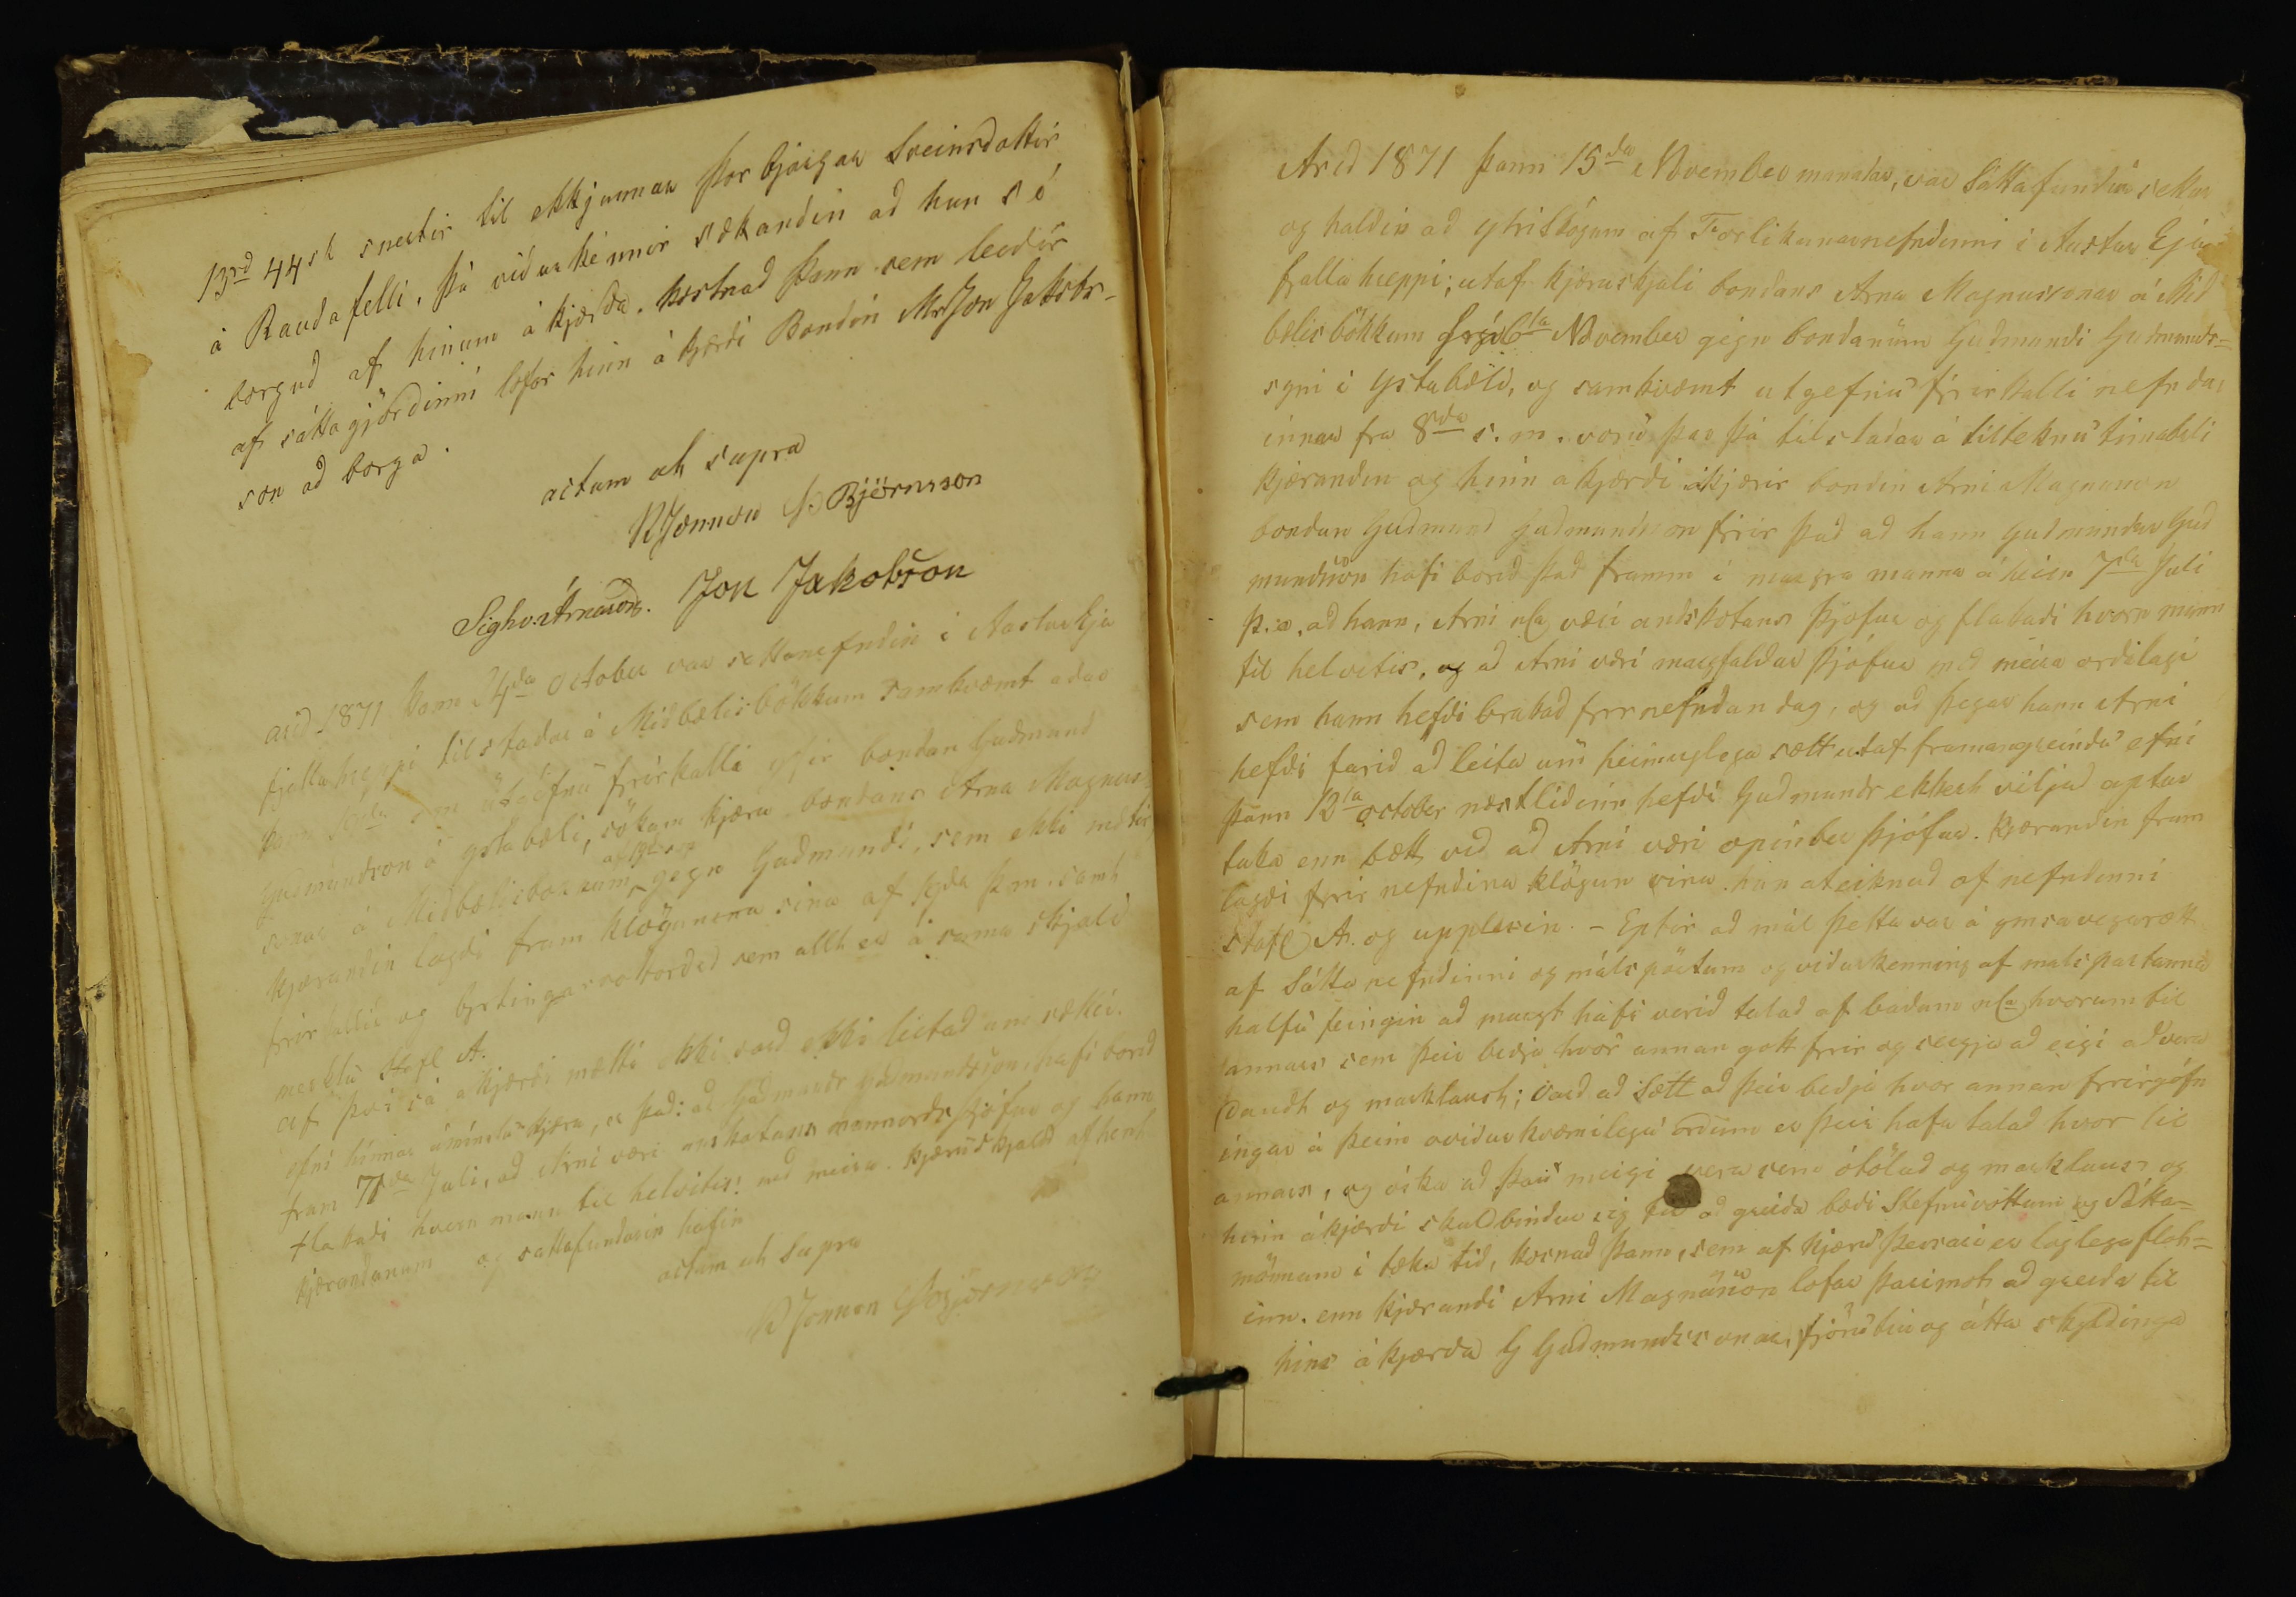 13rd 44sk snertir til ekkjunnar Þorbjargar Sveinsdottir
á Raudafelli, þá vidurkénnir sækandin ad hun sé
borgud af hinum ákjærda. kostnad þann sem leidir
af sáttagjördinni lofar hinn ákjærdi Bondin Mr Jón Jakobs-
son ad borga.
actum ut supra
RJonnson Björnsson
Sighv. Árnason. Jon Jakobsson
arid 1871 þann 24da October var sattanefndin i AusturEyja
fjallahreppi tilstadar á Midbælisbökkum samkvæmt adur
þann s.m. útgéfnu firirkalli firir bondan Gudmund
Gudmundsson á ystabæli, sökum kjæru bondans Arna Magnus-
sonar á Midbælisbökkum gegn Gudmundi, sem ekki mætir,
kjærandin lagdi fram klögunina sina af þ.m. samt
firirkallid og byrtingarvottordid sem allt er á sama skjali
merktu Staf A.
af því sá ákjærdi mætti ekki vard ekki leitad um sættir.
efni hinnar kjæru, er það: ad Gudmundr Gudmundsson, hafi borid
fram 7da Juli, ad Arni væri anskotans mannords þjófur og hann
flakadi hvern mann til helvitis: med meira. kjæruskjalid afhent
kjærandanum og sattafundurin hafin
actum ut supra
RJonnson Björnsson
Arid 1871 þann 15da November manadar, var Sáttafundur settur
og haldin ad ytriSkógum af Forlikunarnefndinni i Austur Eyja
fjallahreppi; utaf kjæruskjali bondans Arna Magnussonar á Mid
bælisbökkum frá 6ta November gegn bondanum Gudmundi Gudmunds-
syni i Ystabæli, og samkvæmt utgefnu firirkalli nefndar
innar fra 8da s.m. voru þar þá tilstadar á tilteknu timabili
kjærandin og hinn akjærdi. ákjærir bondin Arni Magnusson
bondan Gudmund Gudmundsson firir þad ad hann Gudmundur Gud
mundsson hafi borid þad framm i margra manna áheirn 7da Juli
þ.a. ad hann, Arni væri andskotans þjófur og flakadi hvorn mann
til helvitis, og ad Arni væri margfaldur þjófur med meira ordalagi
sem hann hefdi brukad firrnefndan dag, og ad þegar hann Arni
hefdi farid ad leita um heimuglega sætt utaf framangreindu efni
þann 12ta October næstlidinn hefdi Gudmundr ekkert viljad aptur
taka enn bætt vid ad Arni væri opinber þjófur. Kjærandin fram
lagdi firir nefndina klögun sina hun ateiknud af nefndinni
Staf A. og upplesin. - Eptir ad mál þetta var á ymsa vegu rætt
af Sáttanefndinni og málspörtum og vidurkenning af malspartanna
halfu feingin ad margt hafi verid talad af badum hvorum til
annars sem þeir bidja hvor annan gott firir og seigja ad eigi ad vera
daudt og marklaust; Vard ad Sætt ad þeir bidja hvor annan firirgéfn
ingar á þeim ovidurkvæmilegu ordum er þeir hafa talad hvor til
annars, og óska ad þau meigi vera sem ótöluð og marklaus og
hinn ákjærdi skal bindur sig til ad greida bædi Stefnuvottum og Sátta-
mönnum i tæka tid, kosnad þann, sem af kjæru þessari er loglega floh-
inn. enn kjærandi Arni Magnusson lofar þarimoti ad greida til
hins ákjærda G Gudmundssonar, fjörutiu og átta skyldinga